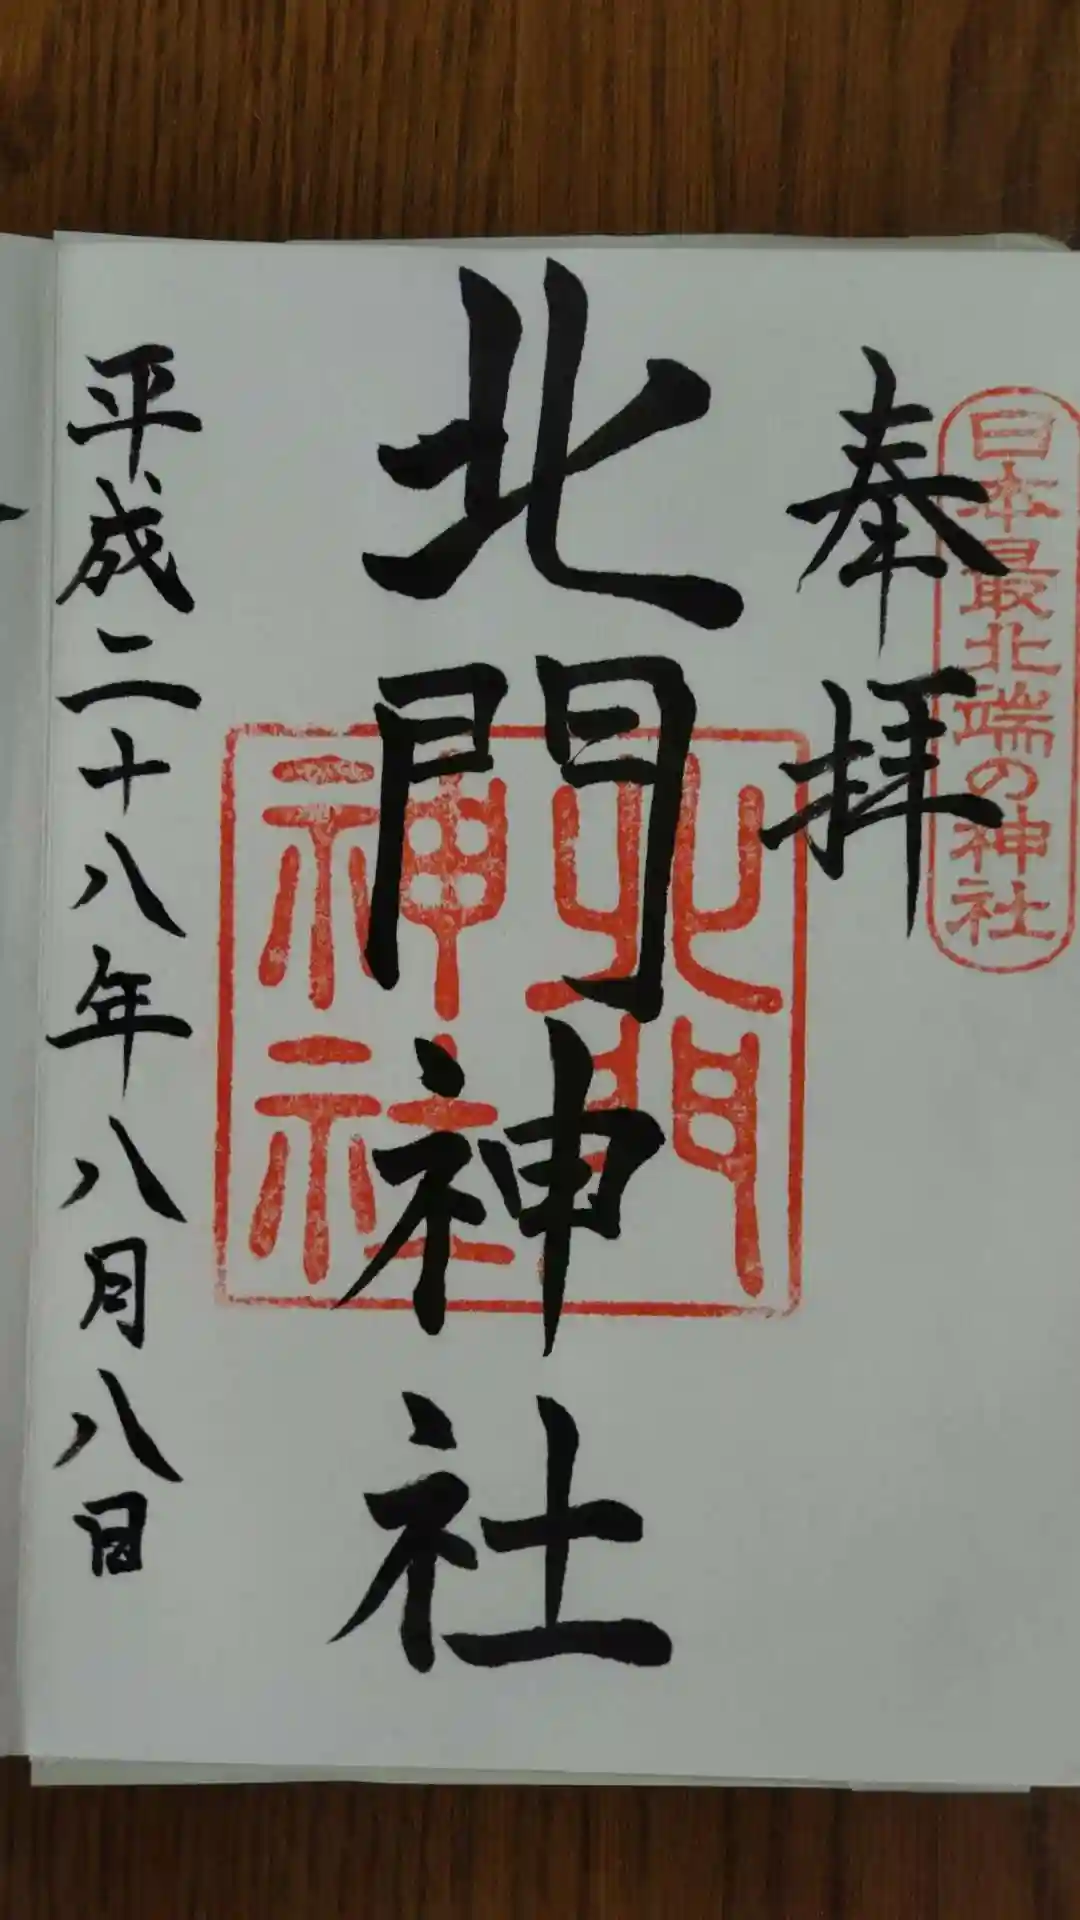 日本最北端の神社
奉拝
北門神社
北門
神社
平成二十八年八月八日